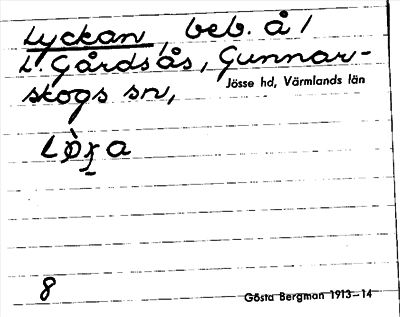 Lyckan, beb. å /
L. Gårdsås, Gunnar-
skogs sn,
Jösse hd, Värmlands län
8
Gösta Bergman 1913–14